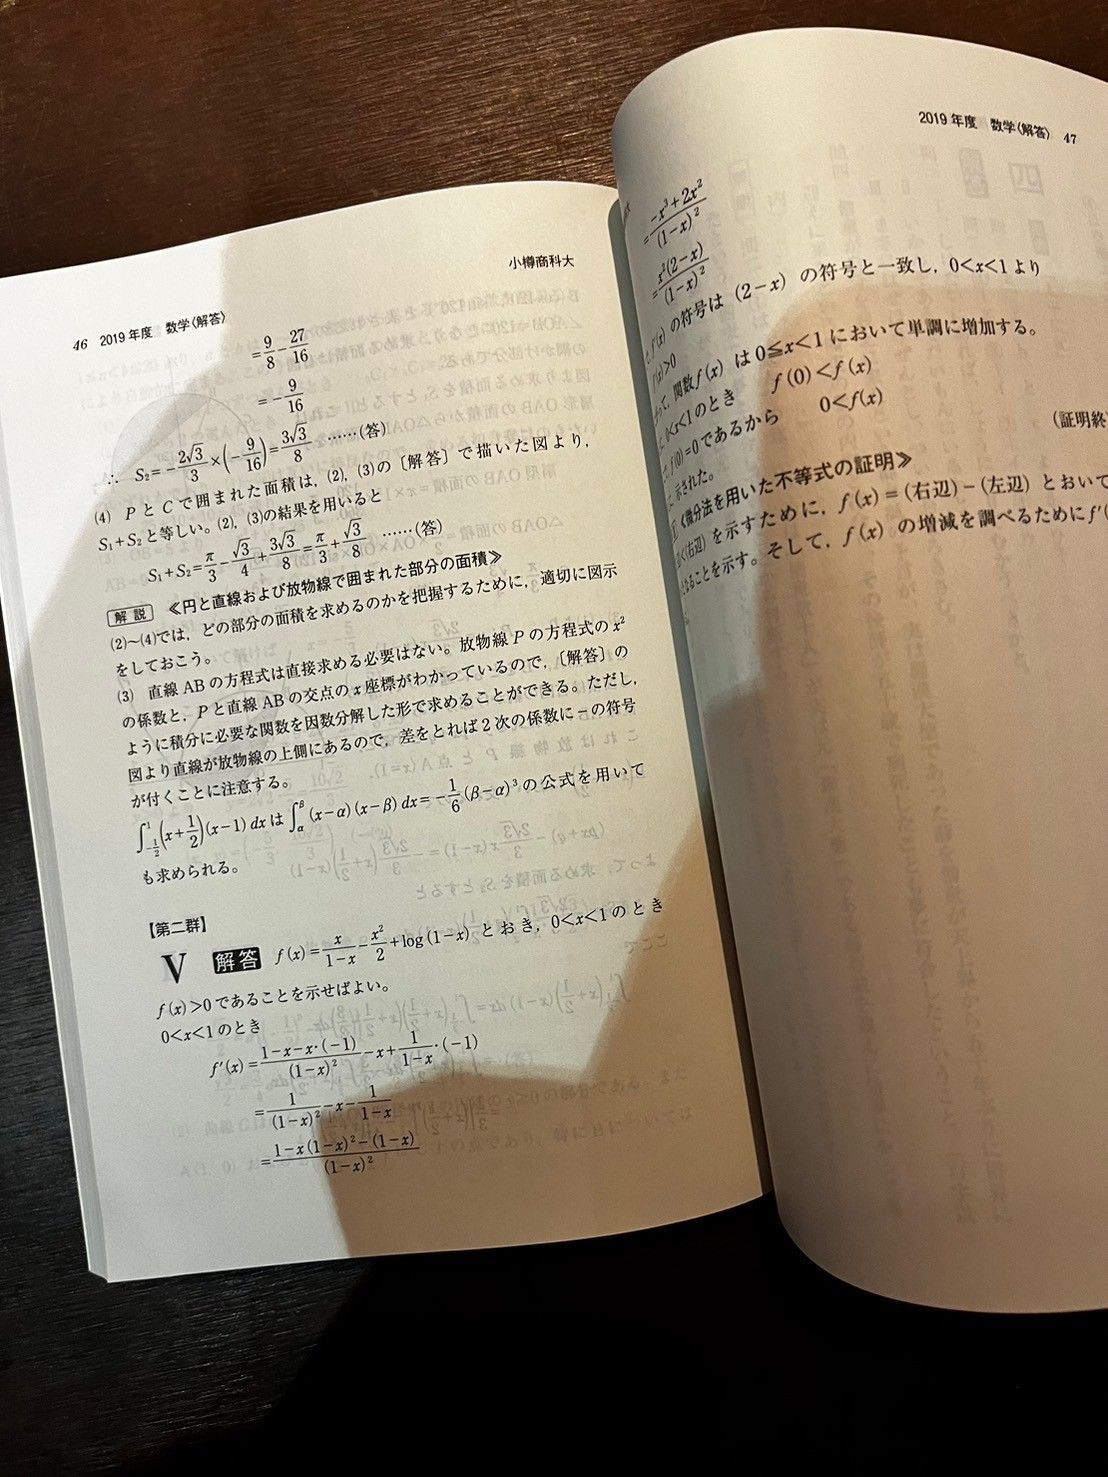 46 2019年度 数学(解答)
小樽商科大
=9/8-27/16
=-9/16
∴ S₂=-2√3/3×(-9/16)=3√3/8 ……(答)
(4) PとCで囲まれた面積は,(2),(3)の〔解答〕で描いた図より,
S₁+S₂と等しい。(2),(3)の結果を用いると
S₁+S₂=π/3-√3/4+3√3/8=π/3+√3/8 ……(答)
解説 ≪円と直線および放物線で囲まれた部分の面積≫
(2)~(4)では,どの部分の面積を求めるのかを把握するために,適切に図示
をしておこう。
(3) 直線ABの方程式は直接求める必要はない。放物線Pの方程式のx²
の係数と,Pと直線ABの交点のx座標がわかっているので,〔解答〕の
ように積分に必要な関数を因数分解した形で求めることができる。ただし,
図より直線が放物線の上側にあるので,差をとれば2次の係数に-の符号
が付くことに注意する。
∫_{-1/2}^{1}(x+1/2)(x-1)dxは∫_α^β(x-α)(x-β)dx=-1/6(β-α)³の公式を用いて
も求められる。
【第二群】
V 解答 f(x)=x/(1-x)-x²/2+log(1-x)とおき,0<x<1のとき
f(x)>0であることを示せばよい。
0<x<1のとき
f'(x)=(1-x-x·(-1))/(1-x)²-x+1/(1-x)·(-1)
=1/(1-x)²-x-1/(1-x)
=(1-x(1-x)²-(1-x))/(1-x)²
2019年度 数学(解答) 47
=(-x³+2x²)/(1-x)²
=x²(2-x)/(1-x)²
f'(x)の符号は(2-x)の符号と一致し,0<x<1より
f'(x)>0
て,関数f(x)は0≦x<1において単調に増加する。
0<x<1のとき f(0)<f(x)
f(0)=0であるから 0<f(x)
示された。 (証明終
≪微分法を用いた不等式の証明≫
<(右辺)を示すために,f(x)=(右辺)-(左辺)とおいて
なることを示す。そして,f(x)の増減を調べるためにf'(